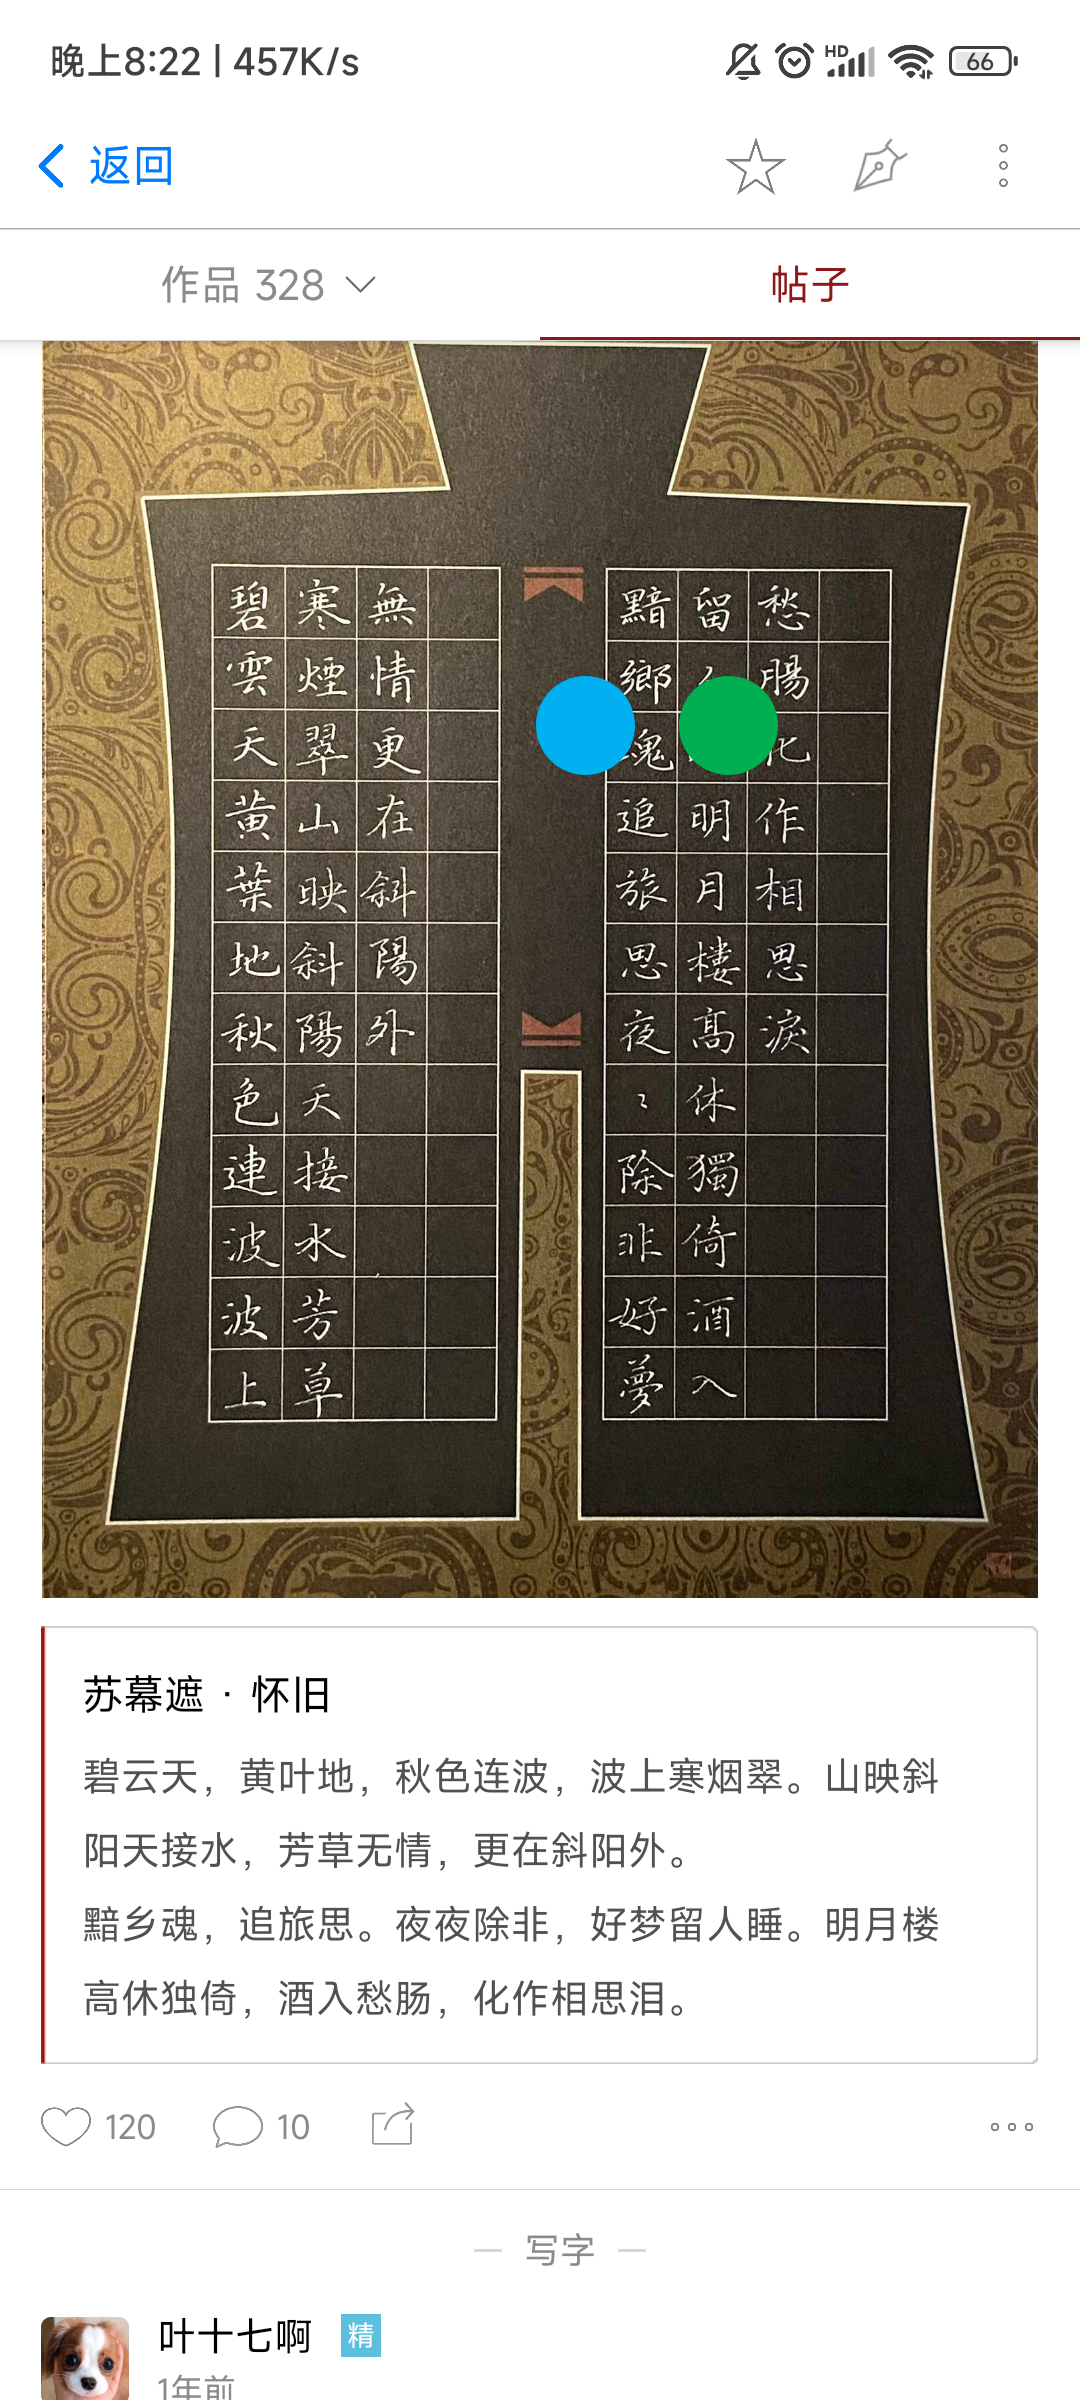 晚上8:22 | 457K/s
HD
66
返回
作品 328
帖子
碧雲天黄葉地秋色連波波上
寒煙翠山映斜陽天接水芳草
無情更在斜陽外
黯鄉魂追旅思夜〻除非好夢
留明月樓高休獨倚酒入
愁腸化作相思淚
苏幕遮 · 怀旧
碧云天，黄叶地，秋色连波，波上寒烟翠。山映斜
阳天接水，芳草无情，更在斜阳外。
黯乡魂，追旅思。夜夜除非，好梦留人睡。明月楼
高休独倚，酒入愁肠，化作相思泪。
120
10
写字
叶十七啊
精
1年前